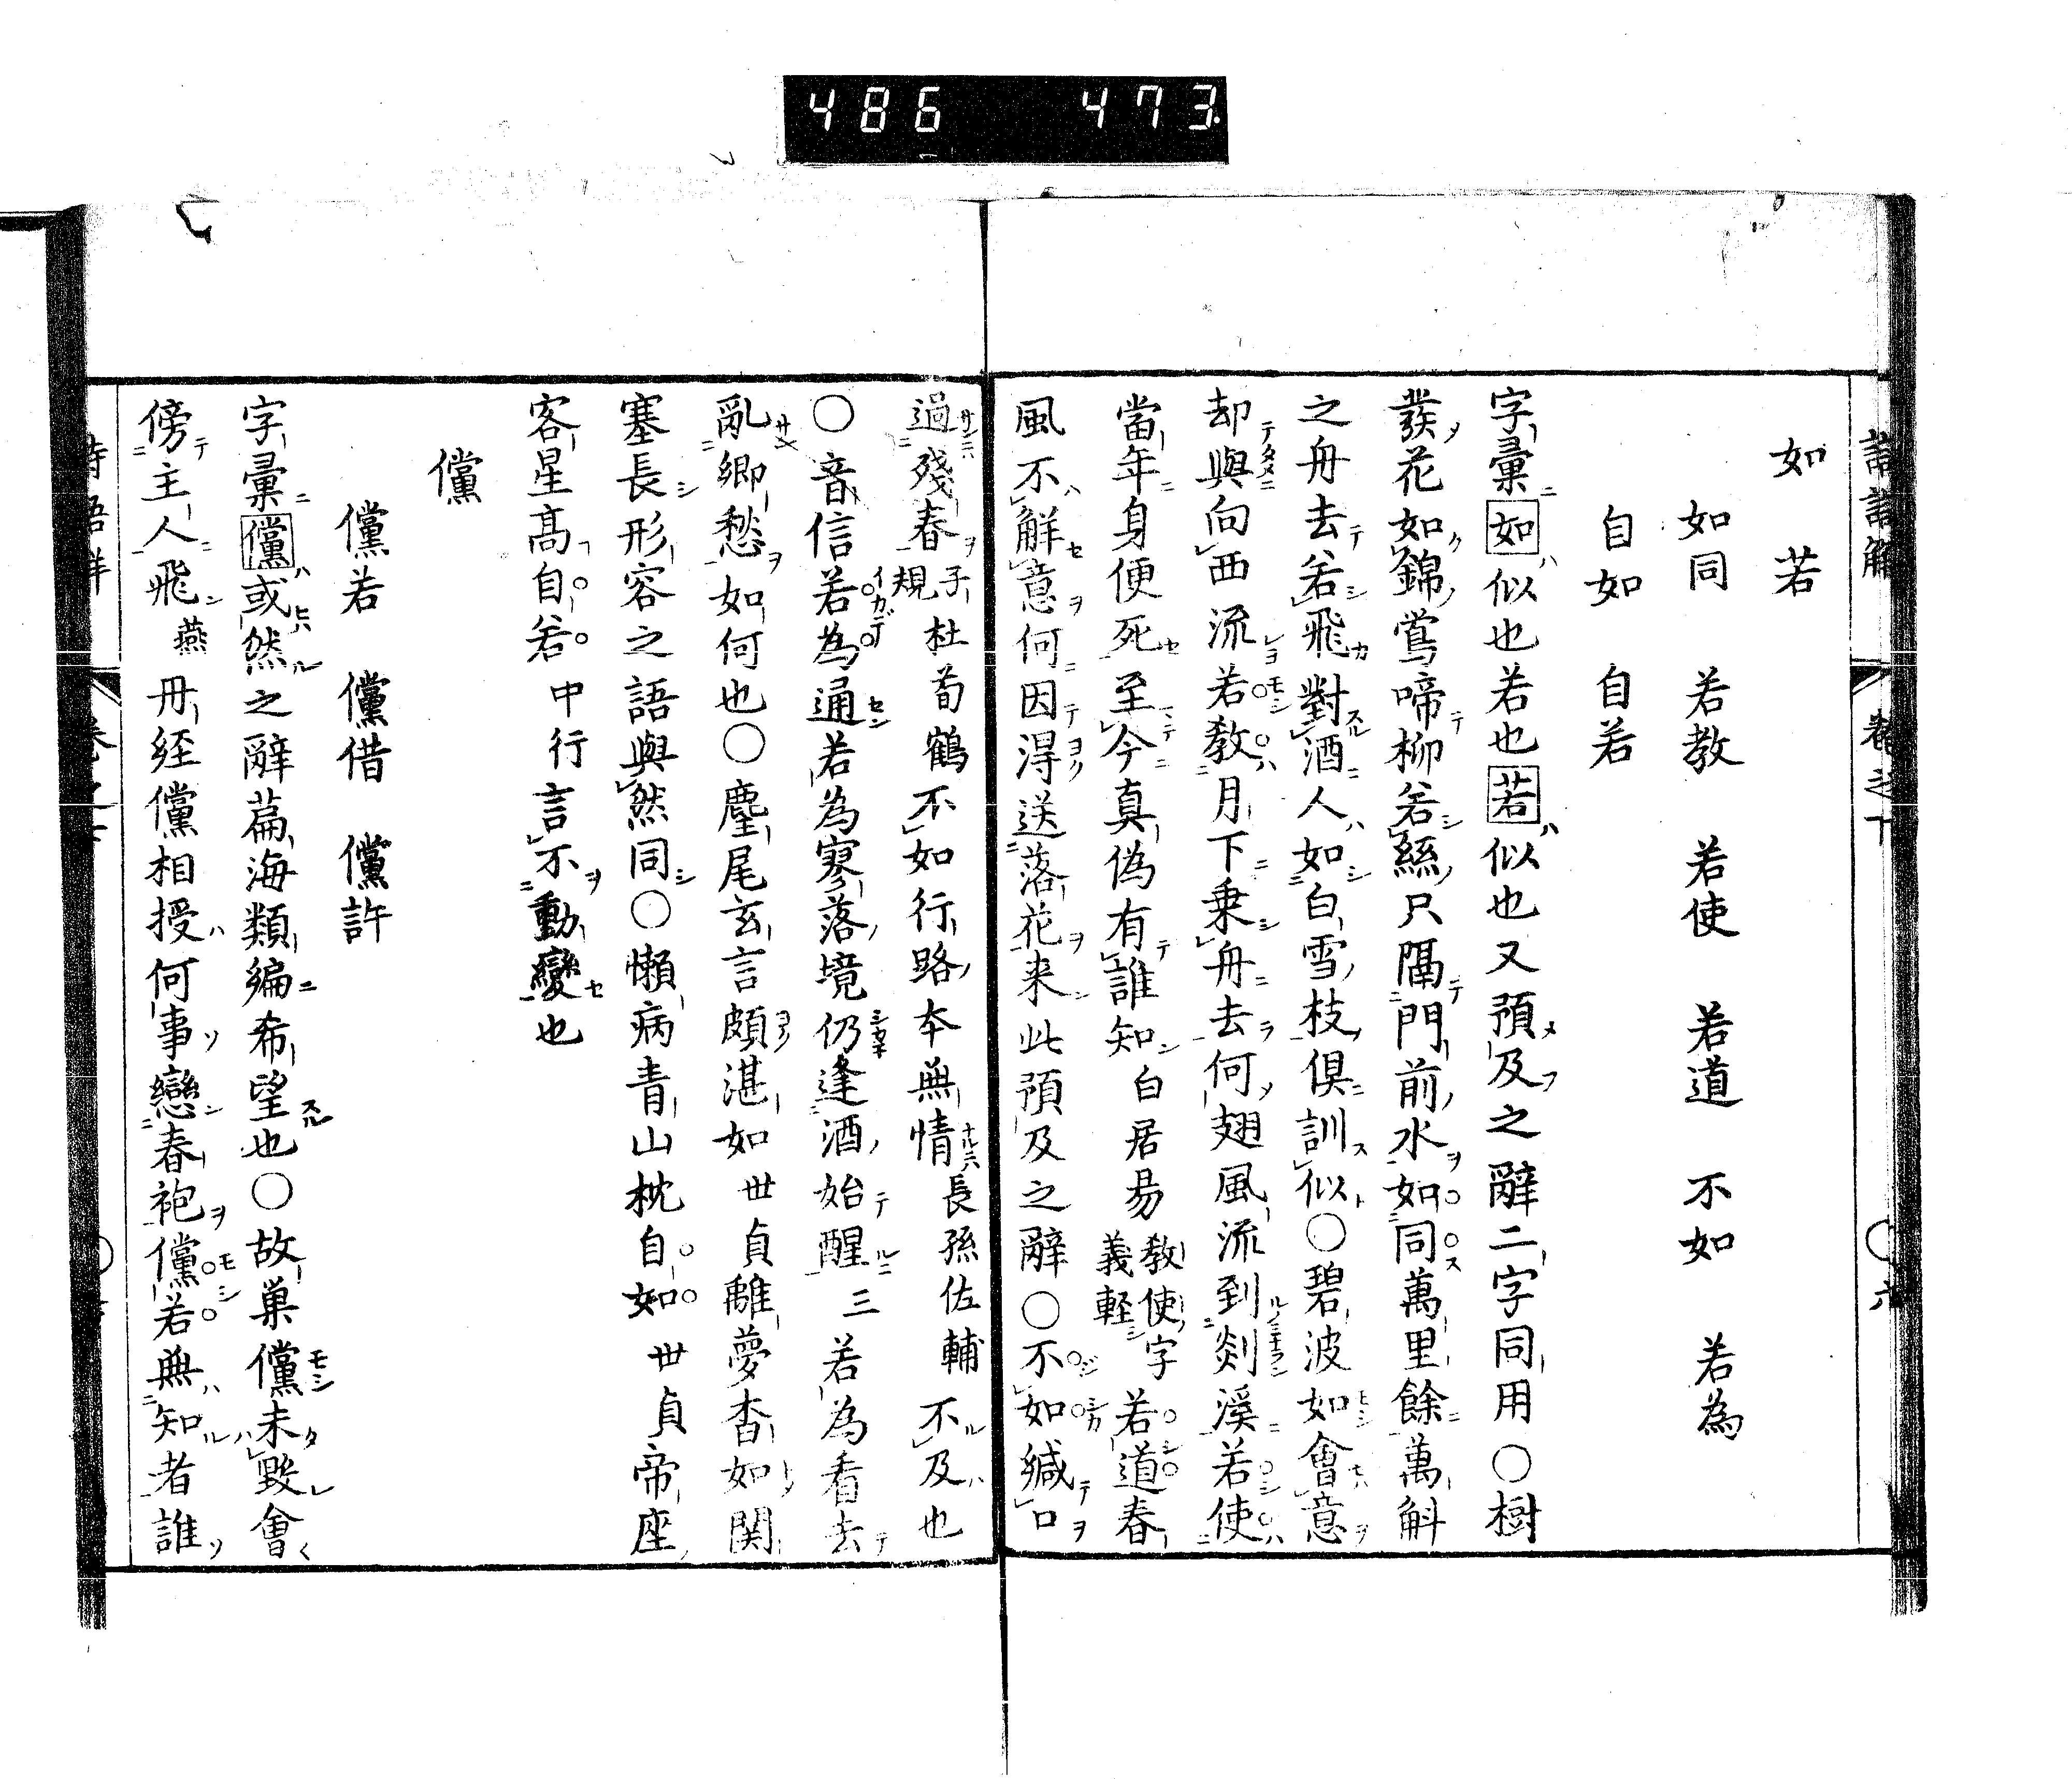 486 473
如 若
如同 若教 若使 若道 不如 若為
自如 自若
字彙如似也若也若似也又預及之辭二字同用○樹
發花如錦鶯啼柳若絲只隔門前水如同萬里餘萬斛
之舟去若飛對酒人如白雪枝俱訓似○碧波如會意
却與向西流若教月下乗舟去何翅風流到剡溪若使
當年身便死至今真偽有誰知白居易教使字義軽若道春
風不解意何因得送落花来此預及之辭○不如緘口
過殘春子規杜荀鶴不如行路本無情長孫佐輔不及也
○音信若為通若為寥落境仍逢酒始醒三若為看去
亂卿愁如何也○塵尾玄言頗湛如世貞離夢杳如関
塞長形容之語與然同○懶病青山枕自如世貞帝座
客星髙自若中行言不動變也
儻
儻若 儻借 儻許
字彙儻或然之辭篇海類編希望也○故巣儻未毀會
傍主人飛燕丹経儻相授何事戀春袍儻若無知者誰